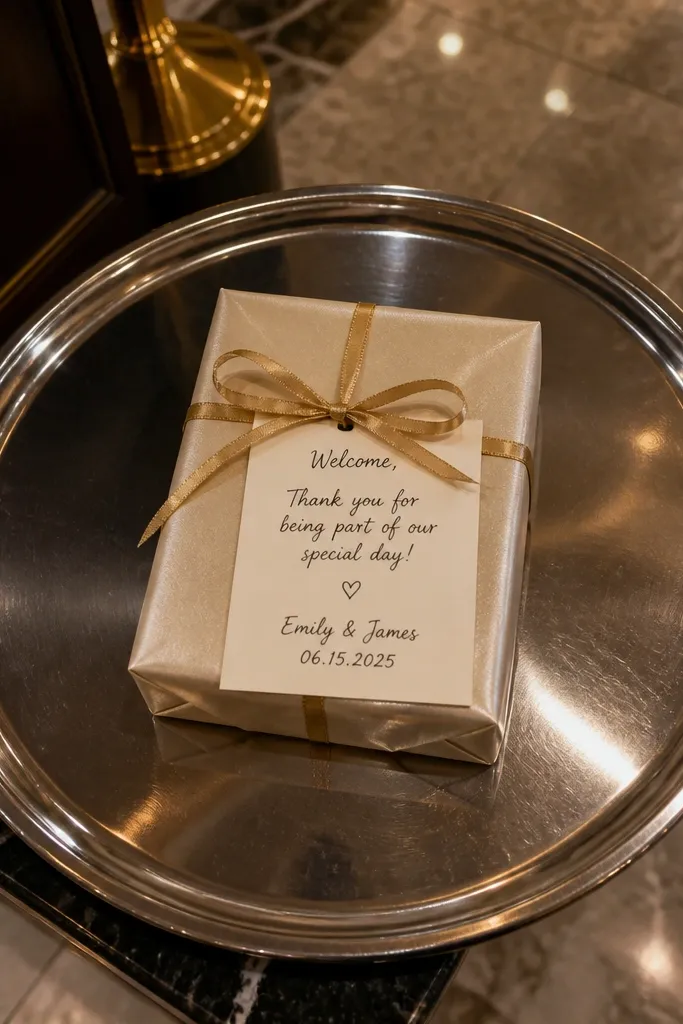 Welcome,
Thank you for
being part of our
special day!
♡
Emily & James
06.15.2025